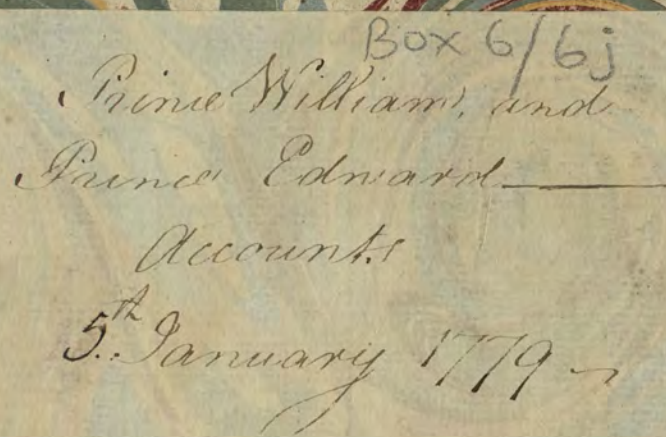 Box 6/6j
Prince William, and
Prince Edward
Accounts
5th January 1779